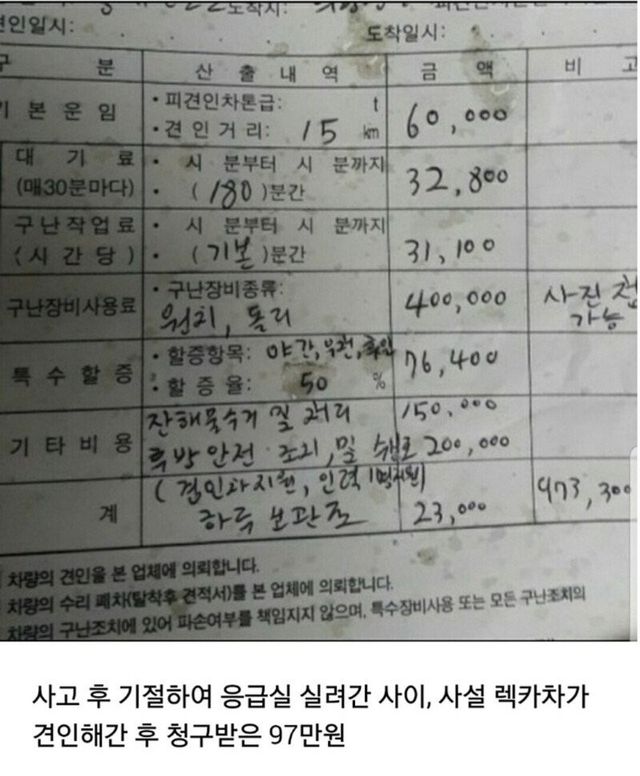 견인일시: 도착일시:
구 분 산 출 내 역 금 액 비 고
기 본 운 임 • 피견인차톤급: t
• 견 인 거 리: 15 km 60,000
대 기 료 • 시 분부터 시 분까지
(매30분마다) • (180)분간 32,800
구난작업료 • 시 분부터 시 분까지
(시 간 당) • (기본)분간 31,100
구난장비사용료 • 구난장비종류: 400,000 사진 첨
윈치, 돌리 가능
특 수 할 증 • 할증항목: 야간, 우천, 휴일 76,400
• 할 증 율: 50 %
기 타 비 용 잔해물수거 및 처리 150,000
후방안전 조치, 및 200,000
(견인차지원, 인력1명지원)
계 하득 보관조 23,000 973,300
차량의 견인을 본 업체에 의뢰합니다.
차량의 수리 폐차(탈착후 견적서)를 본 업체에 의뢰합니다.
차량의 구난조치에 있어 파손여부를 책임지지 않으며, 특수장비사용 또는 모든 구난조치의
사고 후 기절하여 응급실 실려간 사이, 사설 렉카차가
견인해간 후 청구받은 97만원